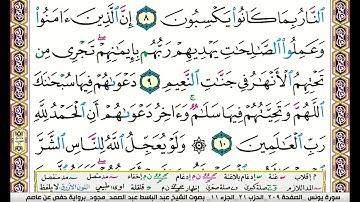 النَّارُ بِمَا كَانُوا۟ يَكْسِبُونَ ٨ إِنَّ ٱلَّذِينَ ءَامَنُوا۟
وَعَمِلُوا۟ ٱلصَّـٰلِحَـٰتِ يَهْدِيهِمْ رَبُّهُم بِإِيمَـٰنِهِمْ تَجْرِى مِن
تَحْتِهِمُ ٱلْأَنْهَـٰرُ فِى جَنَّـٰتِ ٱلنَّعِيمِ ٩ دَعْوَىٰهُمْ فِيهَا سُبْحَـٰنَكَ
ٱللَّهُمَّ وَتَحِيَّتُهُمْ فِيهَا سَلَـٰمٌ وَءَاخِرُ دَعْوَىٰهُمْ أَنِ ٱلْحَمْدُ لِلَّهِ
رَبِّ ٱلْعَـٰلَمِينَ ١٠ وَلَوْ يُعَجِّلُ ٱللَّهُ لِلنَّاسِ ٱلشَّرَّ
سورة يونس الصفحة ٢٠٩ الحزب ٢١ الجزء ١١ بصوت الشيخ عبد الباسط عبد الصمد مجود برواية حفص عن عاصم